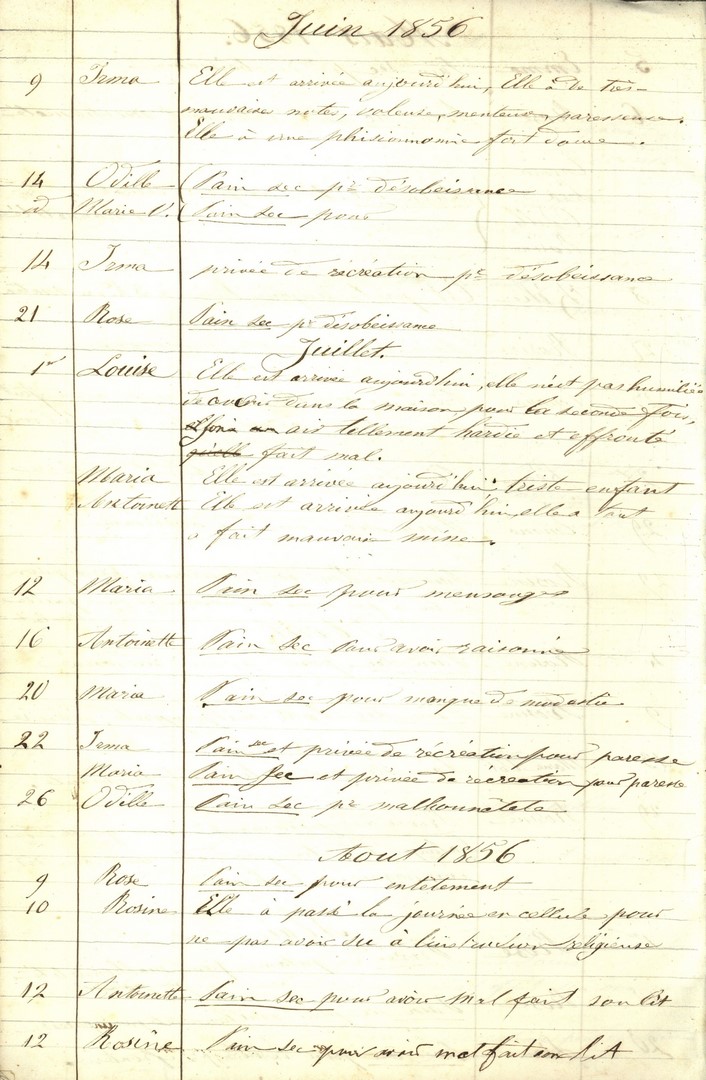 Juin 1856
9 Irma Elle est arrivée aujourd'hui, Elle à de très-
mauvaises notes, voleuse, menteuse, paresseuse.
Elle à une phisionnomie fort douce.
14 Odille Pain sec pr désobeissance
d Marie V. Pain sec pour
14 Irma privée de récréation pr désobéissance
21 Rose Pain sec pr désobeissance
Juillet.
1er Louise Elle est arrivée aujourd'hui, elle n'est pas humiliée
de avenir dans la maison pour la seconde fois,
air tellement hardie et effronté
qu'elle fait mal.
Maria Elle est arrivée aujourd'hui, triste enfant
Antoinett Elle est arrivée aujourd'hui, elle a tout
a fait mauvaise mine.
12 Maria Pain sec pour mensonges
16 Antoinette Pain sec pour avoir raisonnée
20 Maria Pain sec pour manque de modestie
22 Irma Pain sec et privée de récréation pour paresse
Maria Pain Sec et privée de récreation pour paresse
26 Odille Pain sec pr malhonnêteté
Aout 1856
9 Rose Pain sec pour entêtement
10 Rosine Elle à passé la journée en cellule pour
ne pas avoir su à l'instruction religieuse
12 Antoinette Pain sec pour avoir mal fait son lit
12 Rosine Pain sec pour avoir mal fait son lit